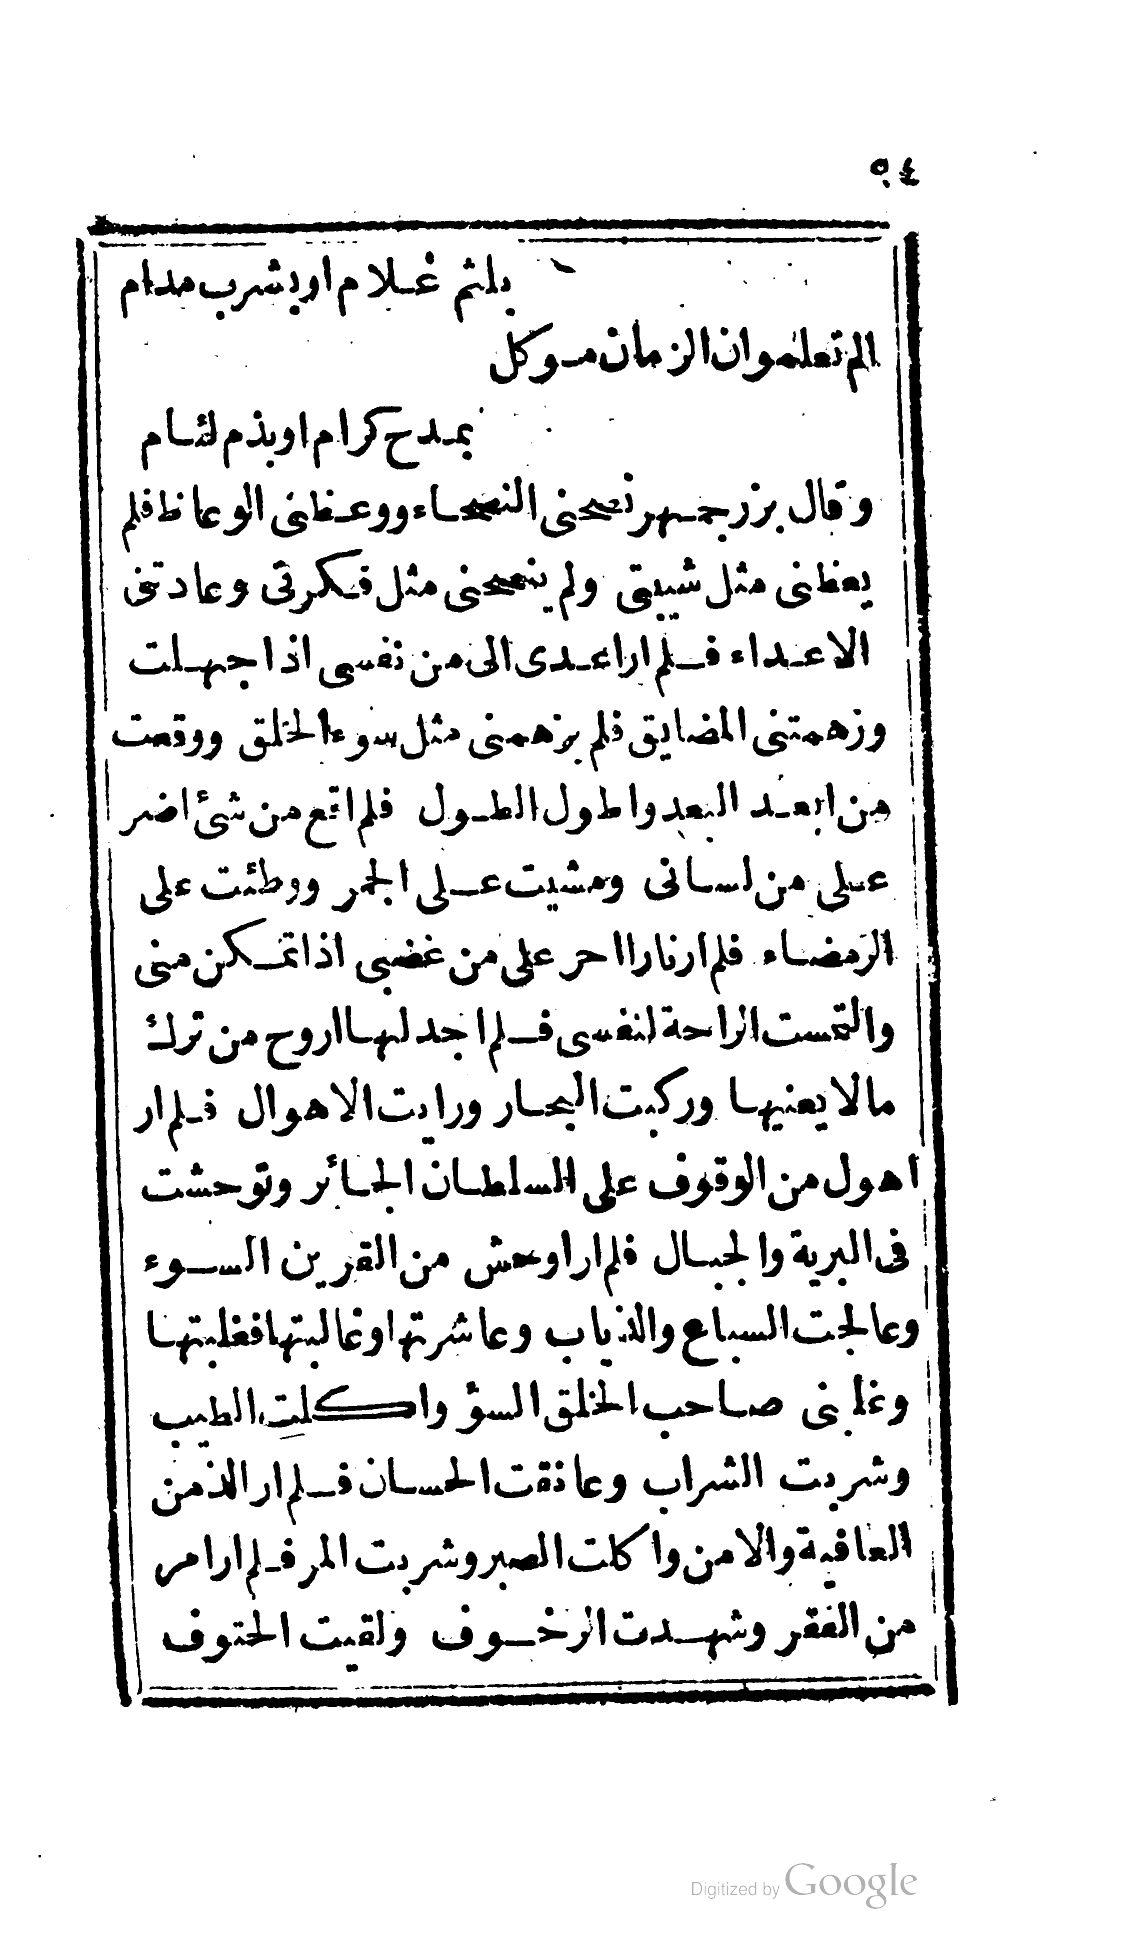 ٥٤
بلثم غلام او بشرب مدام
الم تعلموان الزمان موكل
بمدح كرام او بذم لئام
وقال بزرجمهر نصحنى النصحاء ووعظنى الوعاظ فلم
يعظنى مثل شيبتى ولم ينصحنى مثل فكرتى وعادتنى
الاعداء فلم ار اعدى الى من نفسى اذا جهلت
وزهمتنى المضايق فلم يزهمنى مثل سوء الخلق ووقعت
من ابعد البعد واطول الطول فلم اقع من شئ اضر
على من لسانى ومشيت على الجمر ووطئت على
الرمضاء فلم ار نارا احر على من غضبى اذا تمكن منى
والتمست الراحة لنفسى فلم اجد لها اروح من ترك
مالا يعنيها وركبت البحار ورايت الاهوال فلم ار
اهول من الوقوف على السلطان الجائر وتوحشت
فى البرية والجبال فلم ار اوحش من القرين السوء
وعالجت السباع والذياب وعاشرتها وغالبتها فغلبتها
وغلبنى صاحب الخلق السؤ واكلت الطيب
وشربت الشراب وعانقت الحسان فلم ار الذ من
العافية والامن واكلت الصبر وشربت المر فلم ار امر
من الفقر وشهدت الزخوف ولقيت الحتوف
Digitized by Google